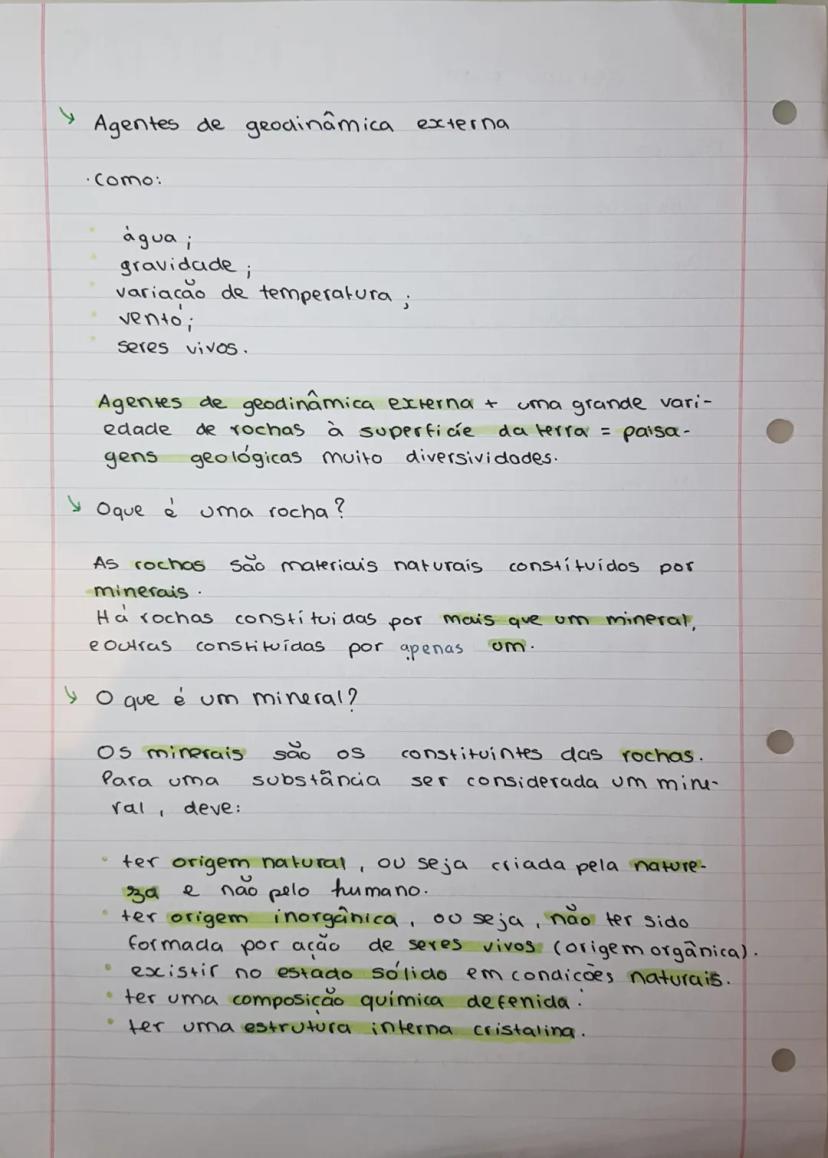 Agentes de geodinâmica externa
· Como:
água ;
gravidade ;
variação de temperatura ;
vento ;
seres vivos .
Agentes de geodinâmica externa + uma grande vari-
edade de rochas à superfície da terra = paisa-
gens geológicas muito diversividades.
Oque é uma rocha?
As rochas são materiais naturais constítuídos por
minerais .
Há rochas constítuidas por mais que um mineral,
e outras constituídas por apenas um.
O que é um mineral?
Os minerais são os constituintes das rochas.
Para uma substância ser considerada um mine-
ral , deve:
• ter origem natural , ou seja criada pela nature-
za e não pelo humano.
• ter origem inorgânica , ou seja , não ter sido
formada por ação de seres vivos (origem orgânica).
• existir no estado sólido em condições naturais.
• ter uma composição química defenida .
• ter uma estrutura interna cristalina .